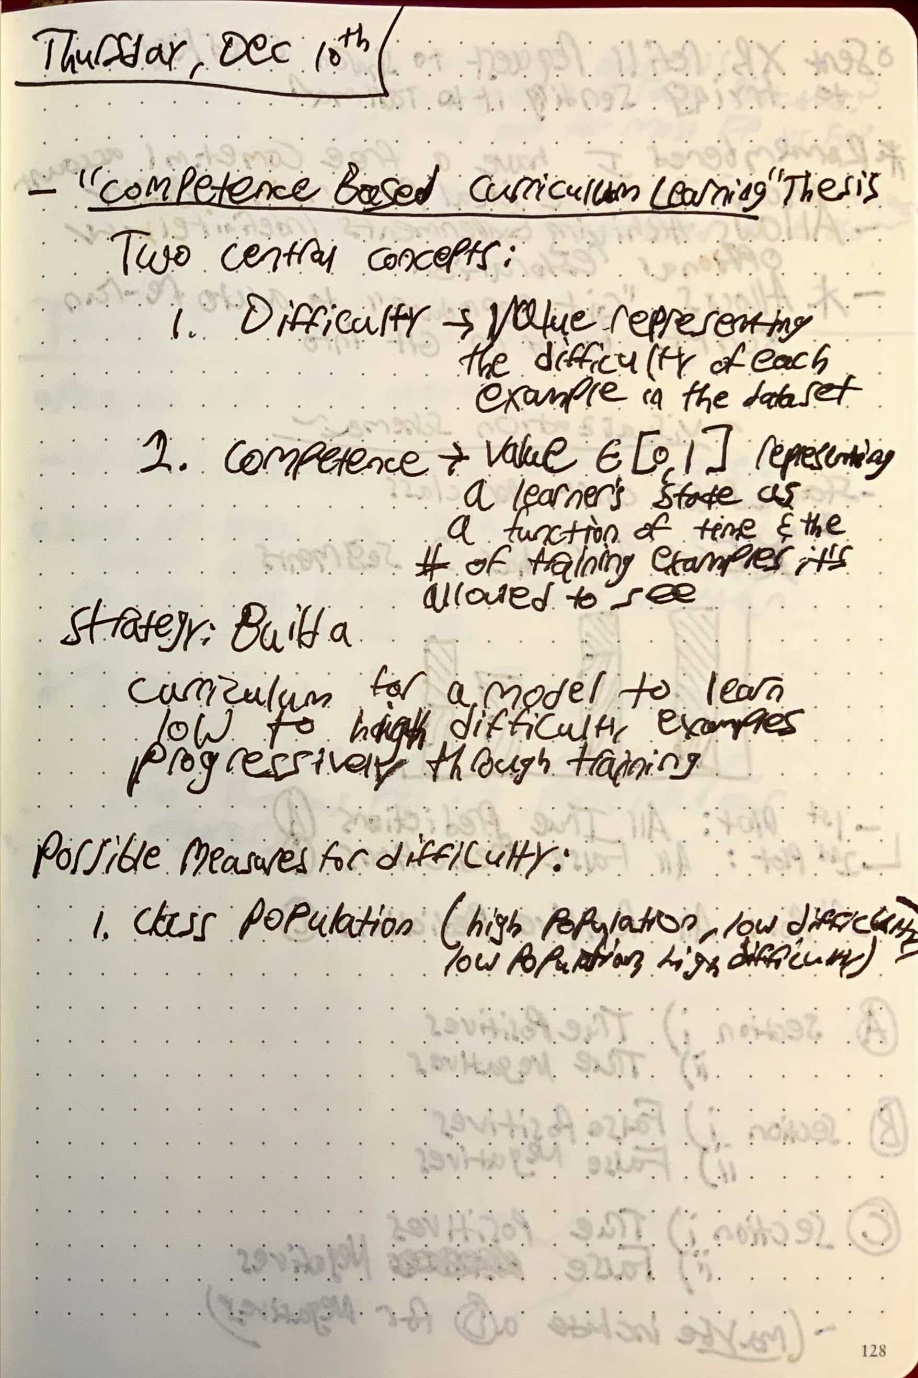 Thursday, Dec 10th
- "Competence Based Curriculum Learning" Thesis
Two central concepts:
1. Difficulty → Value representing
the difficulty of each
example in the dataset
2. Competence → Value ∈ [0,1] representing
a learner's state as
a function of time & the
# of training examples it's
allowed to see
Strategy: Build a
curriculum for a model to learn
low to high difficulty examples
progressively through training
Possible Measures for difficulty:
1. Class Population (high population, low difficulty,
low population, high difficulty)
128